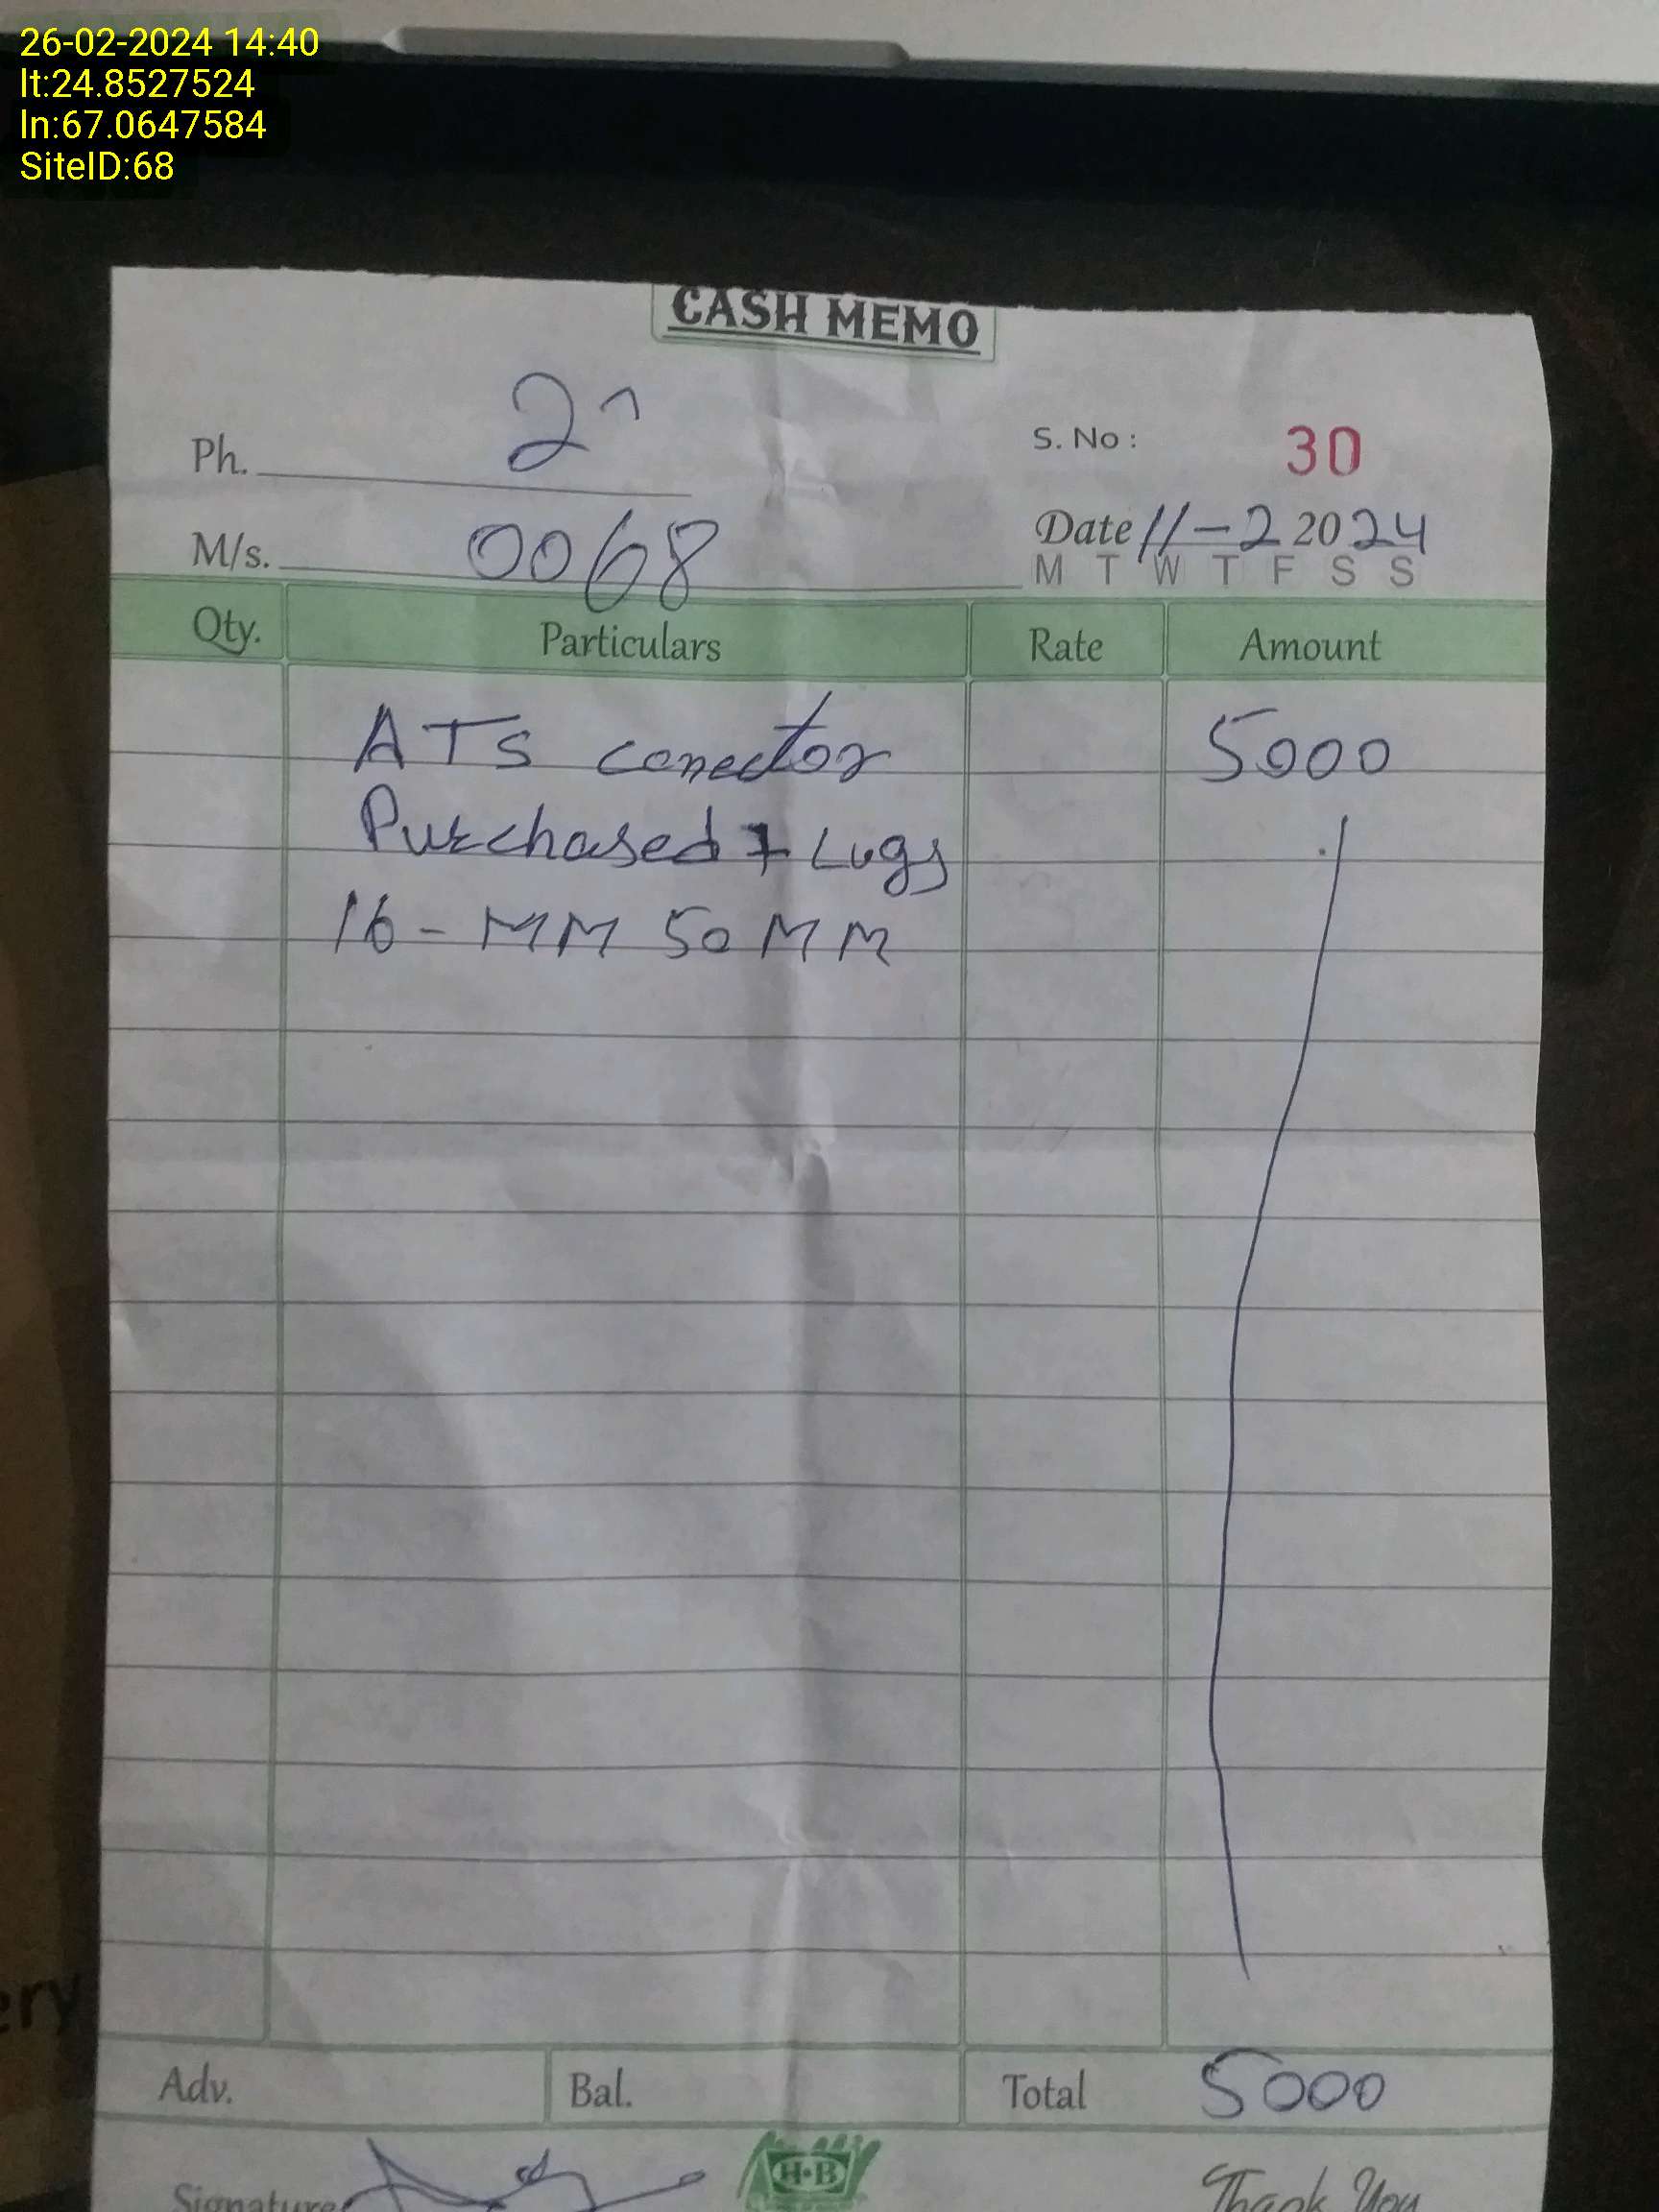 26-02-2024 14:40
lt:24.8527524
ln:67.0647584
SiteID:68
CASH MEMO
Ph.
S. No : 30
M/s. 0068
Date 11-2 2024
M T W T F S S
Qty. Particulars Rate Amount
ATS conector 5000
Purchased + Lugs
16-MM 50 MM
ery
Adv. Bal. Total 5000
Signature
H·B
Thank You